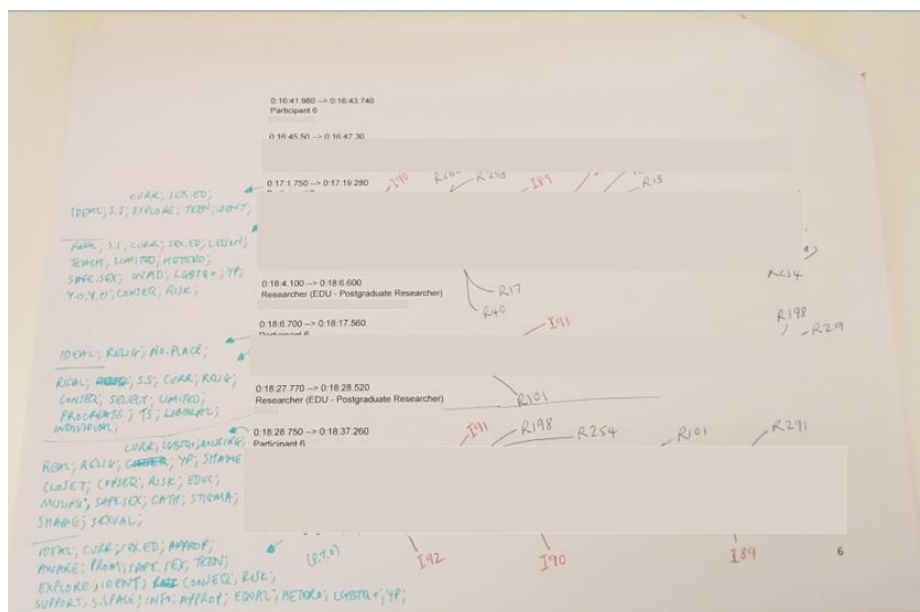 0:16:41.980 --> 0:16:43.740
Participant 6
0:16:45.50 --> 0:16:47.30
0:17:1.750 --> 0:17:19.280
I90
R253
I89
R13
CURR; SEX.ED;
IDEAL; S.S; EXPLORE; TEEN; IDENT;
REAL; S.S; CURR; SEX.ED; LESSON;
TEACH; LIMITED; HETERO;
SAFE.SEX; INAD; LGBTQ+; YP;
Y.O.Y.O; CONSEQ; RISK;
R254
0:18:4.100 --> 0:18:6.600
Researcher (EDU - Postgraduate Researcher)
R17
R40
R198
R29
0:18:6.700 --> 0:18:17.560
Participant 6
I91
IDEAL; RELIG; NO.PLACE;
REAL; S.S; CURR; RELIG;
CONSEQ; SELECT; LIMITED;
PROCREATE; TS; LIBERAL;
INDIVIDUAL;
0:18:27.770 --> 0:18:28.520
Researcher (EDU - Postgraduate Researcher)
R101
0:18:28.750 --> 0:18:37.260
Participant 6
I91
R198
R254
R101
R291
CURR; LGBTQ+; MUSING;
REAL; RELIG; YP; SHAME
CLOSET; CONSEQ; RISK; EDUC;
MUSING; SAFE.SEX; CATH; STIGMA;
SHAME; SEXUAL;
IDEAL; CURR; SEX.ED; APPROP;
AWARE; PROM; SAFE.SEX; TEEN;
EXPLORE; IDENT; CONSEQ; RISK;
SUPPORT; S.SPACE; INFO; APPROP; EQUAL; HETERO; LGBTQ+; YP;
(P.T.O)
I92
I90
I89
6